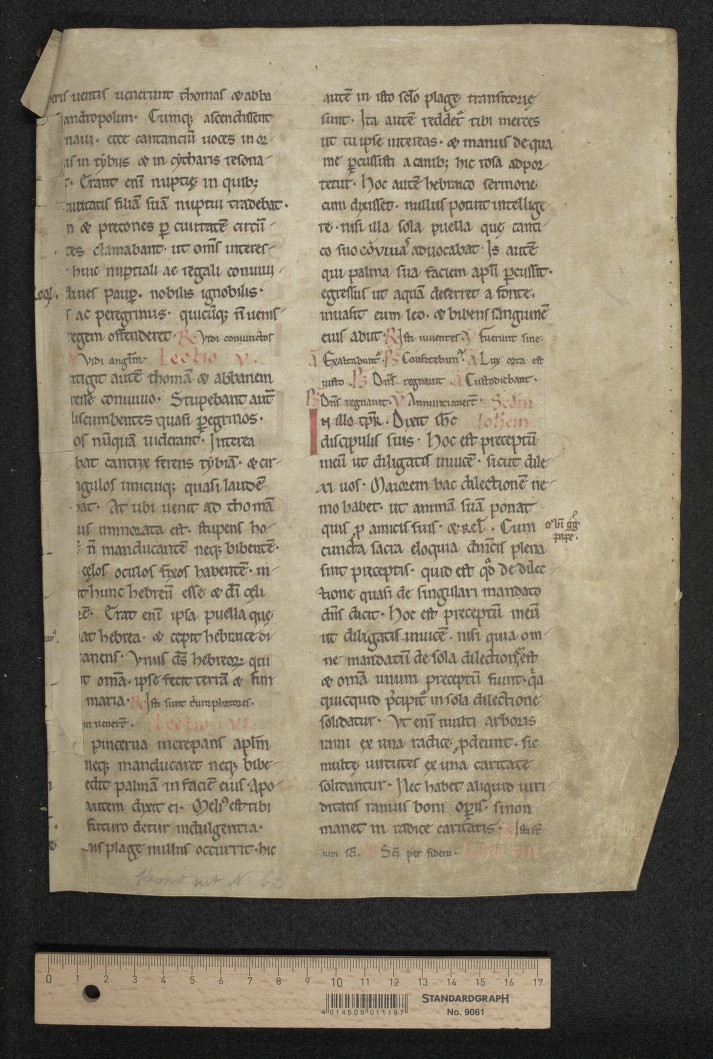 ventis venerunt thomas & abba
andropolim. Cumq; ascendissent
navi. ecce cantanciū voces in or
in tybus & in cytharis resona
Erant enī nuptię in quib;
filiā suā nuptui tradebat.
& precones p̄ civitatē circū
clamabant. ut om̄s interes
huic nuptiali ac regali convivi
dives paup̄. nobilis ignobilis.
ac peregrinus. quicūq; n̄ venis
regem offenderet. R Vidi coniunctos
V Vidi angl̄m. Lectio V.
autē thomā & abbanem
convivio. Stupebant aut̄
discumbentes quasi p̄egrinos.
nūquā viderant. Interea
cantrix ferens tybiā. & cir
singulos unicuiq; quasi laudē
At ubi venit ad thomā
immorata est. stupens ho
n̄ manducantē neq; bibentē.
cęlos oculos fixos habentē. in
hunc hebreū esse & dī cęli
Erat enī ipsa puella que
hebrea. & cepit hebraice di
Vnus d̄s hebreoꝝ qui
om̄a. ipse fecit terrā & fun
maria. R Isti sunt triumphatores.
Lectio VI.
pincerna increpans ap̄lm
neq; manducaret neq; bibe
palmā in faciē eius. Apo
autem dixit ei. Meliꝰ est tibi
futuro detur indulgentia.
plage nullus occurrit. hic
autē in isto sclo plagę transitorię
sunt. Ita autē reddet̄ tibi merces
ut tu ipse intereas. & manus de qua
me p̄cussisti a canib; hic rosa adpor
tetur. Hoc autē hebraico sermone
cum dixisset. nullus potuit intellige
re. nisi illa sola puella quę canti
co suo cōvivia advocabat. Is autē
qui palma sua faciem ap̄li p̄cussit.
egressus ut aquā deferret a fonte.
invasit eum leo. & bibens sangunē
eius abiit. R Isti viventes. V Fuerunt sine
A Exaltabunt̄. Ps Confitebim̄. A Lux orta est
iusto. Ps Dn̄s regnavit. A Custodiebant.
Ps Dn̄s regnavit. V Annunciaver̄t. Scdm
In illo tp̄r. Dixit ih̄c Iohem
discipulis suis. Hoc est preceptū
meū ut diligatis invicē. sicut dile
xi vos. Maiorem hac dilectionē ne
mo habet. ut animā suā ponat
quis p̄ amicis suis. & rel̄. Cum
cuncta sacra eloquia dn̄icis plena
sint preceptis. quid est q̄d de dilec
tione quasi de singulari mandato
dn̄s dicit. Hoc est preceptū meū
ut diligatis invicē. nisi quia om
ne mandatū de sola dilectione est
& om̄a unum preceptū sunt. q̄a
quicquid p̄cipit̄ in sola dilectione
solidatur. Vt enī multi arboris
rami ex una radice p̄deunt. sic
multę virtutes ex una caritate
solidantur. Nec habet aliquid viri
ditatis ramus boni op̄is. si non
manet in radice caritatis. R Isti st̄
viri sc̄i. V Sc̄i per fidem.
0 1 2 3 4 5 6 7 8 9 10 11 12 13 14 15 16 17
4 014509 011197
STANDARDGRAPH
No. 9061